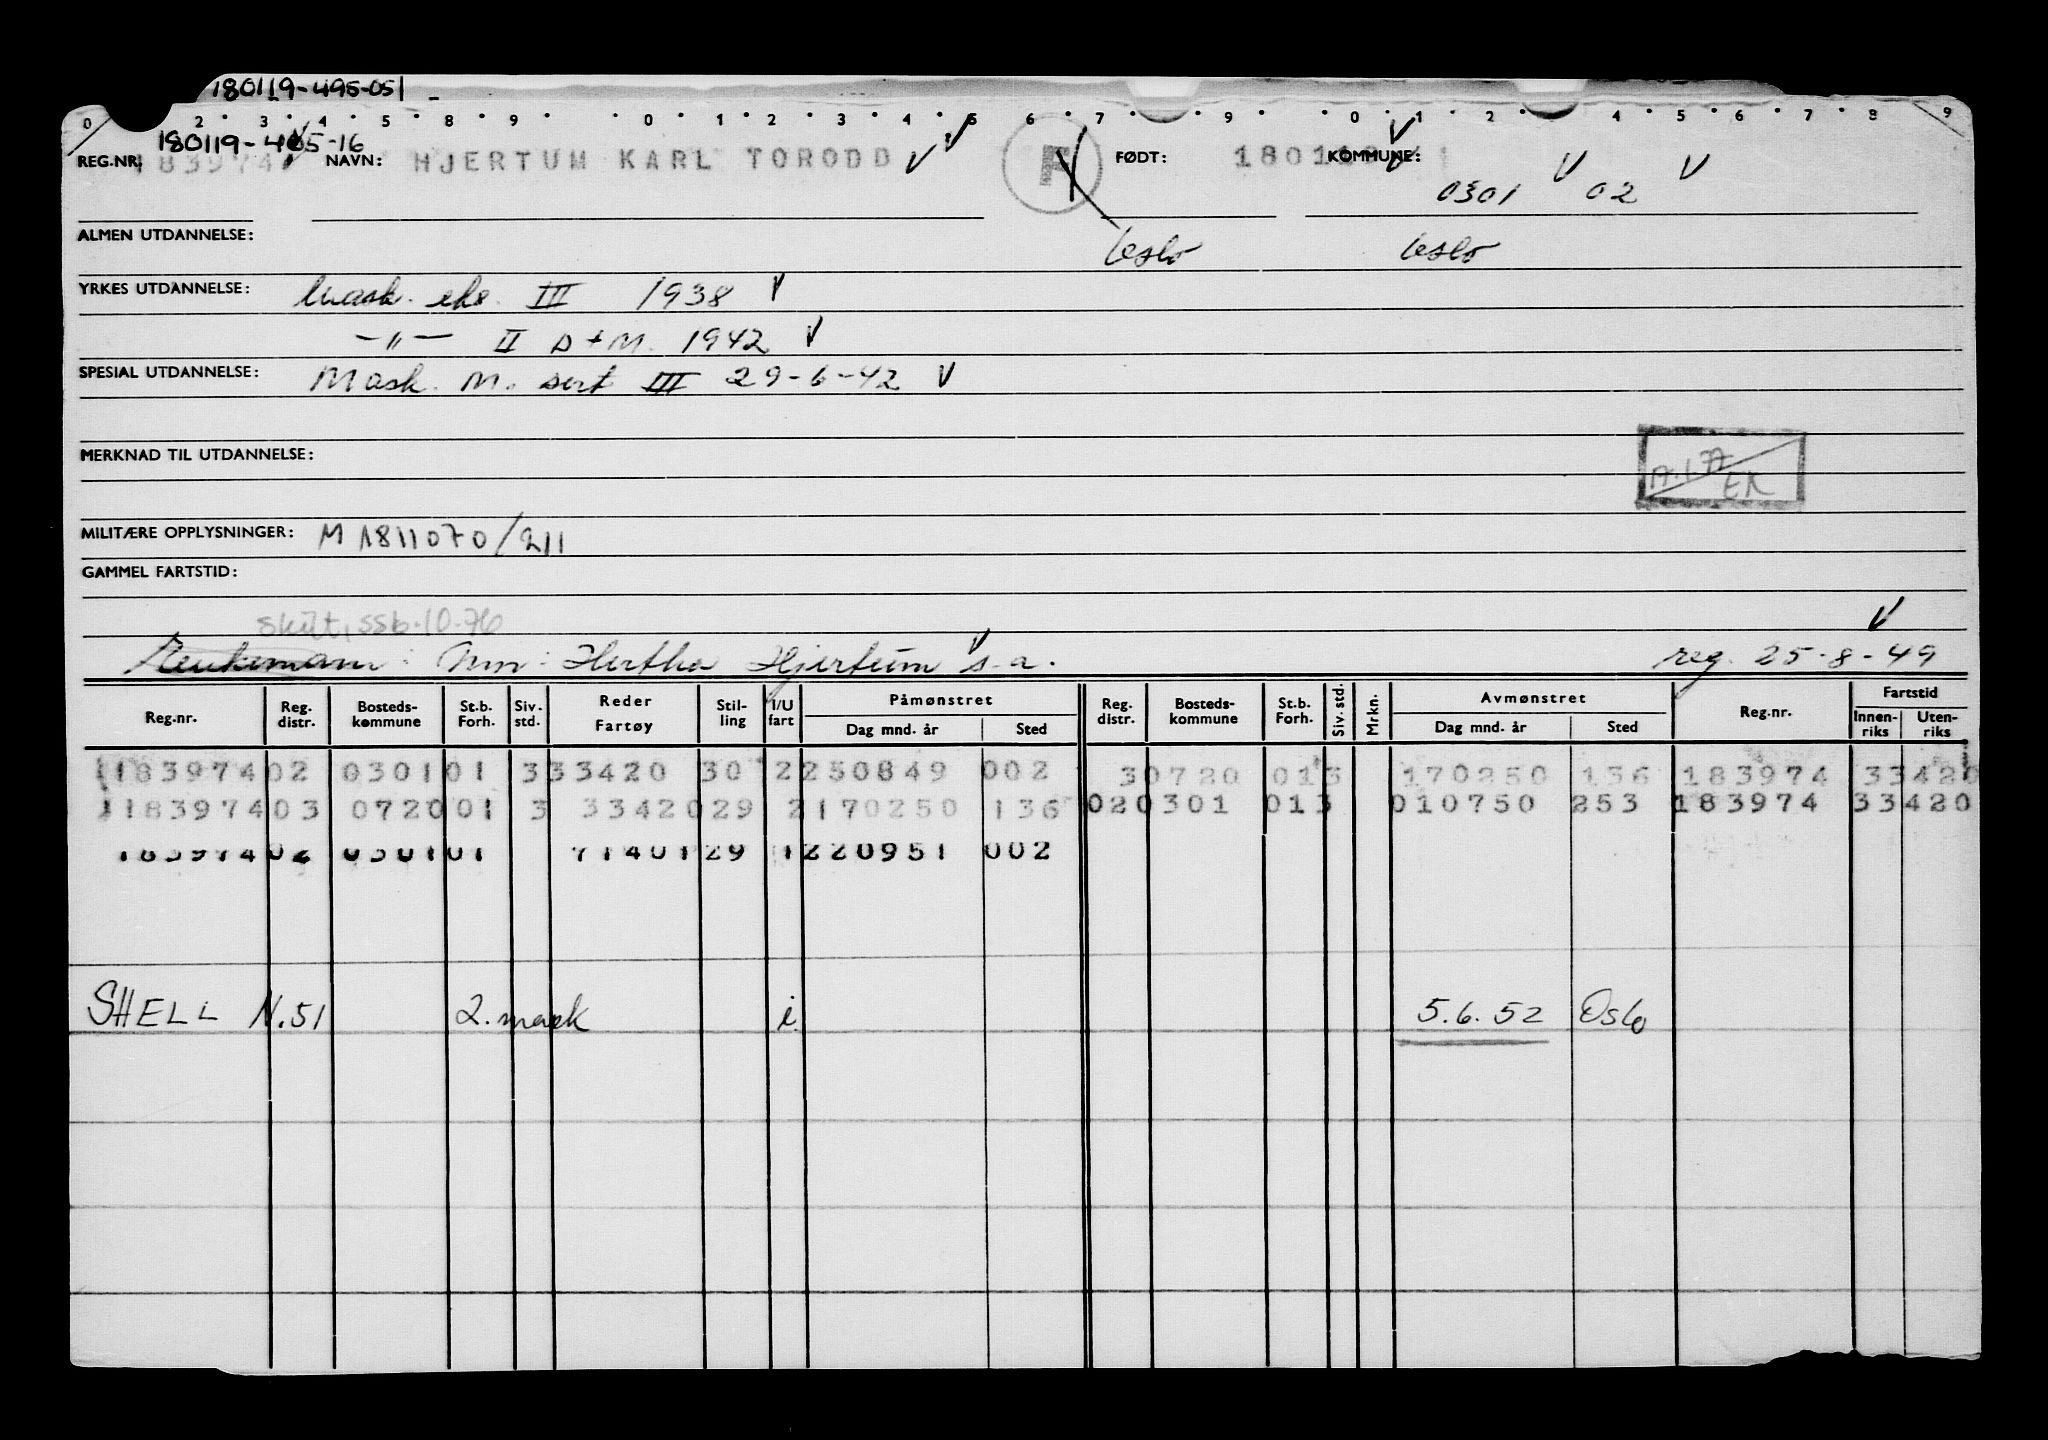 180119-495-051
0 2 3 4 5 8 9 0 1 2 3 4 5 6 7 8 9 0 1 2 3 4 5 6 7 8 9
180119-405-16
REG.NR. 183974 NAVN: HJERTUM KARL TORODD FØDT: 180119 KOMMUNE:
0301 02
ALMEN UTDANNELSE: Oslo Oslo
YRKES UTDANNELSE: Mask. eks. III 1938
-"- II D+M. 1942
SPESIAL UTDANNELSE: Mask. M. sert III 29-6-42
MERKNAD TIL UTDANNELSE:
17.1.77 EK
MILITÆRE OPPLYSNINGER: M 1811070/211
GAMMEL FARTSTID:
skilt, ssb.10.76
Hertha Hjertum s.a. reg. 25-8-49
Reg.nr. Reg. distr. Bosteds-kommune St.b. Forh. Siv. std. Reder Fartøy Stil-ling I/U fart Påmønstret Dag mnd. år Sted Reg. distr. Bosteds-kommune St.b. Forh. Siv. std. Mrkn. Avmønstret Dag mnd. år Sted Reg.nr. Fartstid Innen-riks Uten-riks
183974 02 0301 01 3 33420 30 2 250849 002 3 0720 013 170250 136 183974 33420
183974 03 0720 01 3 33420 29 2 170250 136 02 0301 013 010750 253 183974 33420
183974 02 0301 01 71401 29 1 220951 002
SHELL N.51 2. mask i 5.6.52 Oslo